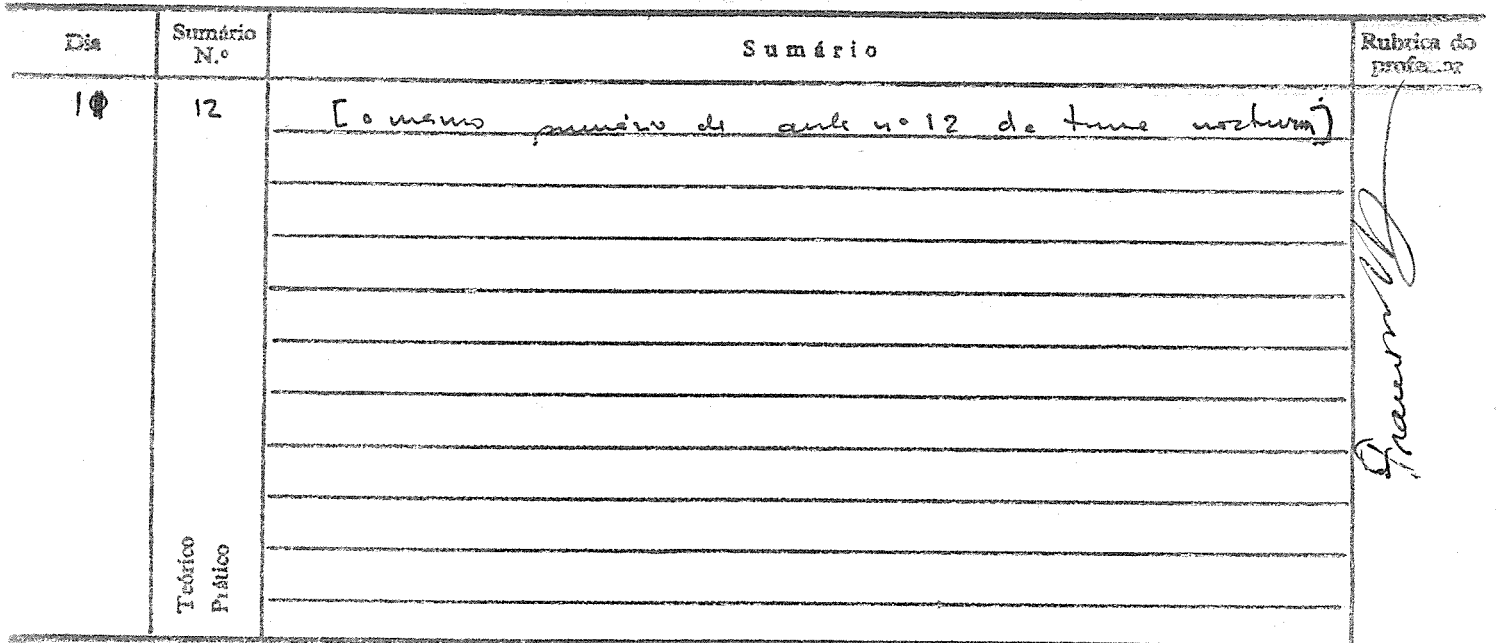 Dia
Sumário
N.º
Sumário
Rubrica do
professor
12
[o mesmo sumário da aula nº 12 da turma nocturna]
Teórico
Prático